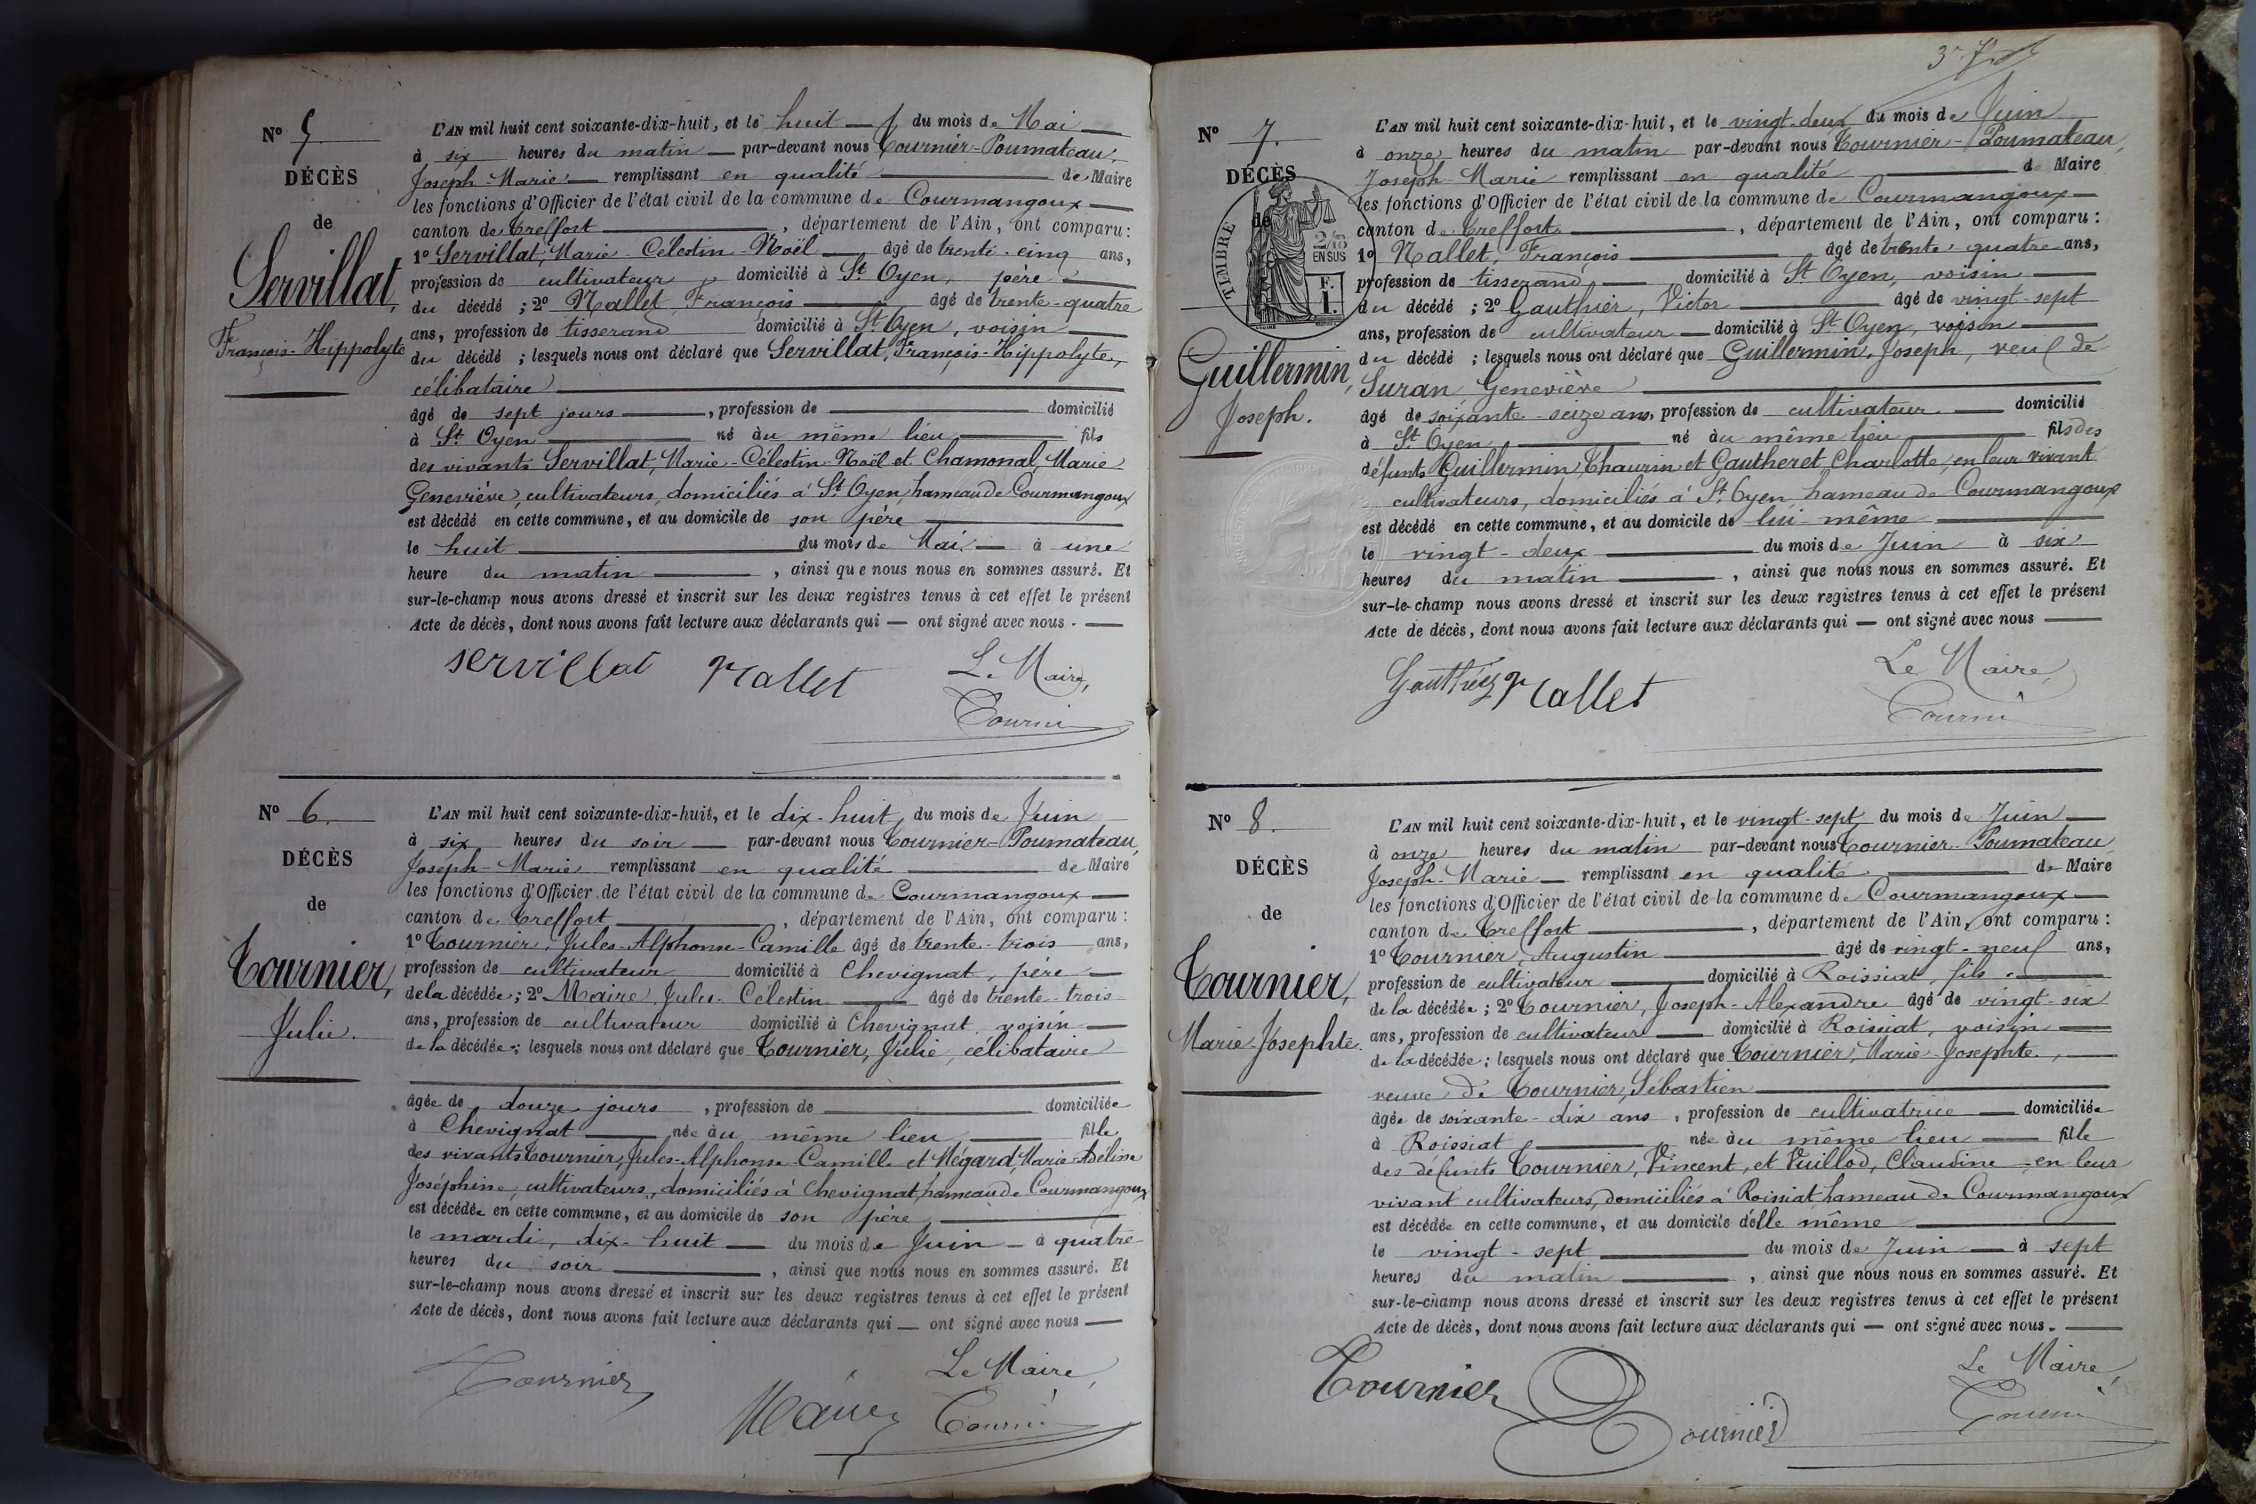 Nº 5
DÉCÈS
de
Servillat,
François-Hippolyte
L'AN mil huit cent soixante-dix-huit, et le huit du mois de Mai
à six heures du matin par-devant nous Tournier-Poumateau,
Joseph-Marie remplissant en qualité de Maire
les fonctions d'Officier de l'état civil de la commune de Courmangoux
canton de Treffort, département de l'Ain, ont comparu :
1º Servillat, Marie-Célestin-Noël âgé de trente-cinq ans,
profession de cultivateur, domicilié à St Oyen, père
du décédé ; 2º Nallet, François âgé de trente-quatre
ans, profession de tisserand domicilié à St Oyen, voisin
du décédé ; lesquels nous ont déclaré que Servillat, François-Hippolyte,
célibataire
âgé de sept jours, profession de domicilié
à St Oyen né au même lieu fils
des vivants Servillat, Marie-Célestin-Noël et Chamonal, Marie
Geneviève, cultivateurs, domiciliés à St Oyen, hameau de Courmangoux
est décédé en cette commune, et au domicile de son père
le huit du mois de Mai à une
heure du matin, ainsi que nous nous en sommes assuré. Et
sur-le-champ nous avons dressé et inscrit sur les deux registres tenus à cet effet le présent
Acte de décès, dont nous avons fait lecture aux déclarants qui — ont signé avec nous.
servillat Nallet Le Maire,
Tourni
Nº 6.
DÉCÈS
de
Tournier,
Julie.
L'AN mil huit cent soixante-dix-huit, et le dix-huit, du mois de Juin
à six heures du soir par-devant nous Tournier-Poumateau,
Joseph-Marie remplissant en qualité de Maire
les fonctions d'Officier de l'état civil de la commune de Courmangoux
canton de Treffort, département de l'Ain, ont comparu :
1º Tournier, Jules-Alphonse-Camille âgé de trente-trois ans,
profession de cultivateur domicilié à Chevignat, père
de la décédée ; 2º Maire, Jules-Célestin âgé de trente-trois
ans, profession de cultivateur domicilié à Chevignat, voisin
de la décédée ; lesquels nous ont déclaré que Tournier, Julie, célibataire
âgée de douze jours, profession de domiciliée
à Chevignat née au même lieu fille
des vivants Tournier, Jules-Alphonse-Camille et Mégard, Marie-Adeline
Joséphine, cultivateurs, domiciliés à Chevignat, hameau de Courmangoux
est décédée en cette commune, et au domicile de son père
le mardi, dix-huit du mois de Juin à quatre
heures du soir, ainsi que nous nous en sommes assuré. Et
sur-le-champ nous avons dressé et inscrit sur les deux registres tenus à cet effet le présent
Acte de décès, dont nous avons fait lecture aux déclarants qui — ont signé avec nous
Le Maire,
Tournier Maire Tourni
Nº 7.
DÉCÈS
de
TIMBRE
2/10
EN SUS
F.
1.
Guillermin,
Joseph.
L'AN mil huit cent soixante-dix-huit, et le vingt-deux du mois de Juin
à onze heures du matin par-devant nous Tournier-Poumateau,
Joseph-Marie remplissant en qualité de Maire
les fonctions d'Officier de l'état civil de la commune de Courmangoux
canton de Treffort, département de l'Ain, ont comparu :
1º Nallet, François âgé de trente-quatre ans,
profession de tisserand domicilié à St Oyen, voisin
du décédé ; 2º Gauthier, Victor âgé de vingt-sept
ans, profession de cultivateur domicilié à St Oyen, voisin
du décédé ; lesquels nous ont déclaré que Guillermin, Joseph, veuf de
Suran Geneviève
âgé de soixante-seize ans, profession de cultivateur domicilié
à St Oyen né au même lieu fils des
défunts Guillermin, Thaurin et Gautheret Charlotte, en leur vivant
cultivateurs, domiciliés à St Oyen, hameau de Courmangoux
est décédé en cette commune, et au domicile de lui-même
le vingt-deux du mois de Juin à six
heures du matin, ainsi que nous nous en sommes assuré. Et
sur-le-champ nous avons dressé et inscrit sur les deux registres tenus à cet effet le présent
Acte de décès, dont nous avons fait lecture aux déclarants qui — ont signé avec nous
Gauthier Nallet Le Maire,
Tourni
Nº 8.
DÉCÈS
de
Tournier,
Marie-Josephte.
L'AN mil huit cent soixante-dix-huit, et le vingt-sept du mois de Juin
à onze heures du matin par-devant nous Tournier-Poumateau,
Joseph-Marie remplissant en qualité de Maire
les fonctions d'Officier de l'état civil de la commune de Courmangoux
canton de Treffort, département de l'Ain, ont comparu :
1º Tournier, Augustin âgé de vingt-neuf ans,
profession de cultivateur domicilié à Roissiat, fils
de la décédée ; 2º Tournier, Joseph-Alexandre âgé de vingt-six
ans, profession de cultivateur domicilié à Roissiat, voisin
de la décédée ; lesquels nous ont déclaré que Tournier, Marie-Josephte,
veuve de Tournier, Sébastien
âgée de soixante-dix ans, profession de cultivatrice domiciliée
à Roissiat, née au même lieu fille
des défunts Tournier, Vincent, et Vuillod, Claudine, en leur
vivant cultivateurs, domiciliés à Roissiat, hameau de Courmangoux
est décédée en cette commune, et au domicile d'elle même
le vingt-sept du mois de Juin à sept
heures du matin, ainsi que nous nous en sommes assuré. Et
sur-le-champ nous avons dressé et inscrit sur les deux registres tenus à cet effet le présent
Acte de décès, dont nous avons fait lecture aux déclarants qui — ont signé avec nous.
Tournier Le Maire,
Tournier Tourni